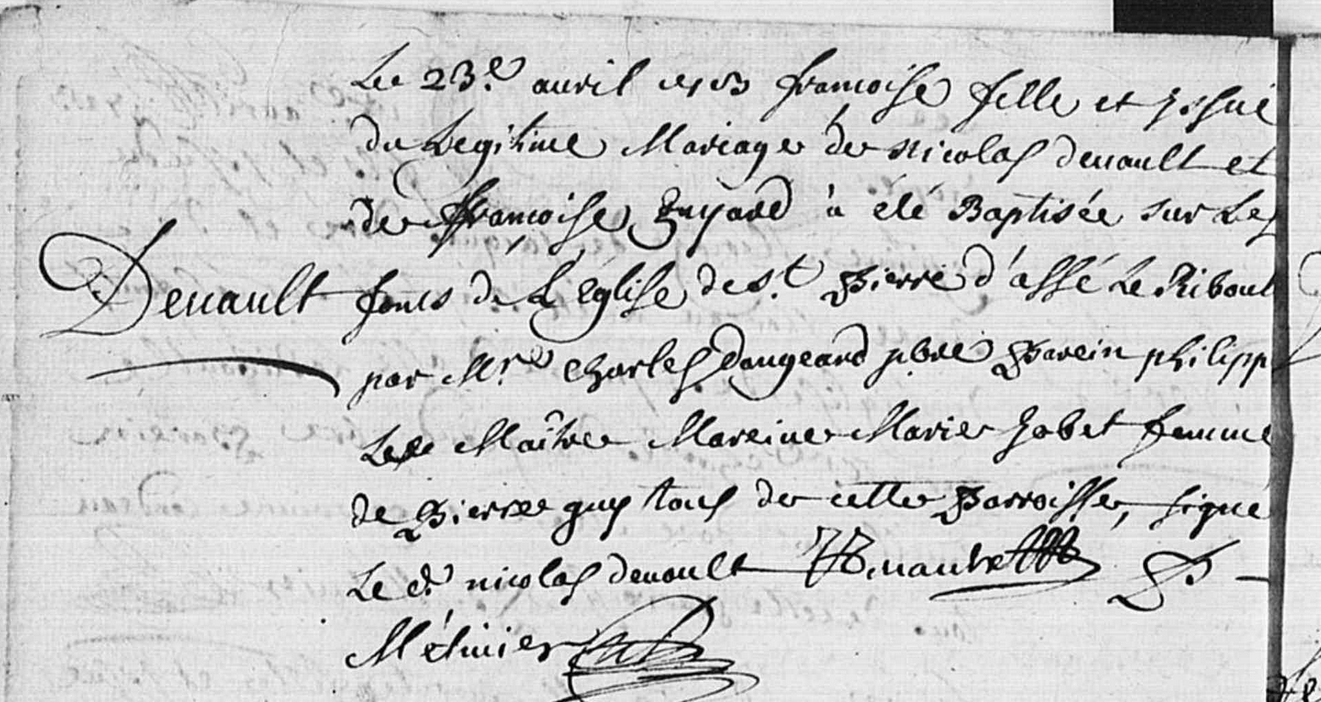 Le 23.e avril francoise fille et Jssue
du Legitime Mariage de Nicolas Denault et
de françoise Guyard à été Baptisée sur Les
Denault
fonts de L'église de st. Pierre d'assé Le Riboul
par Mr. Charles Dangeard pbre Parein philipp
Le Maître Mareine Marie Gobet femme
de Pierre guy tous de cette Parroisse, signé
Le dt. nicolas denault P
Métivier